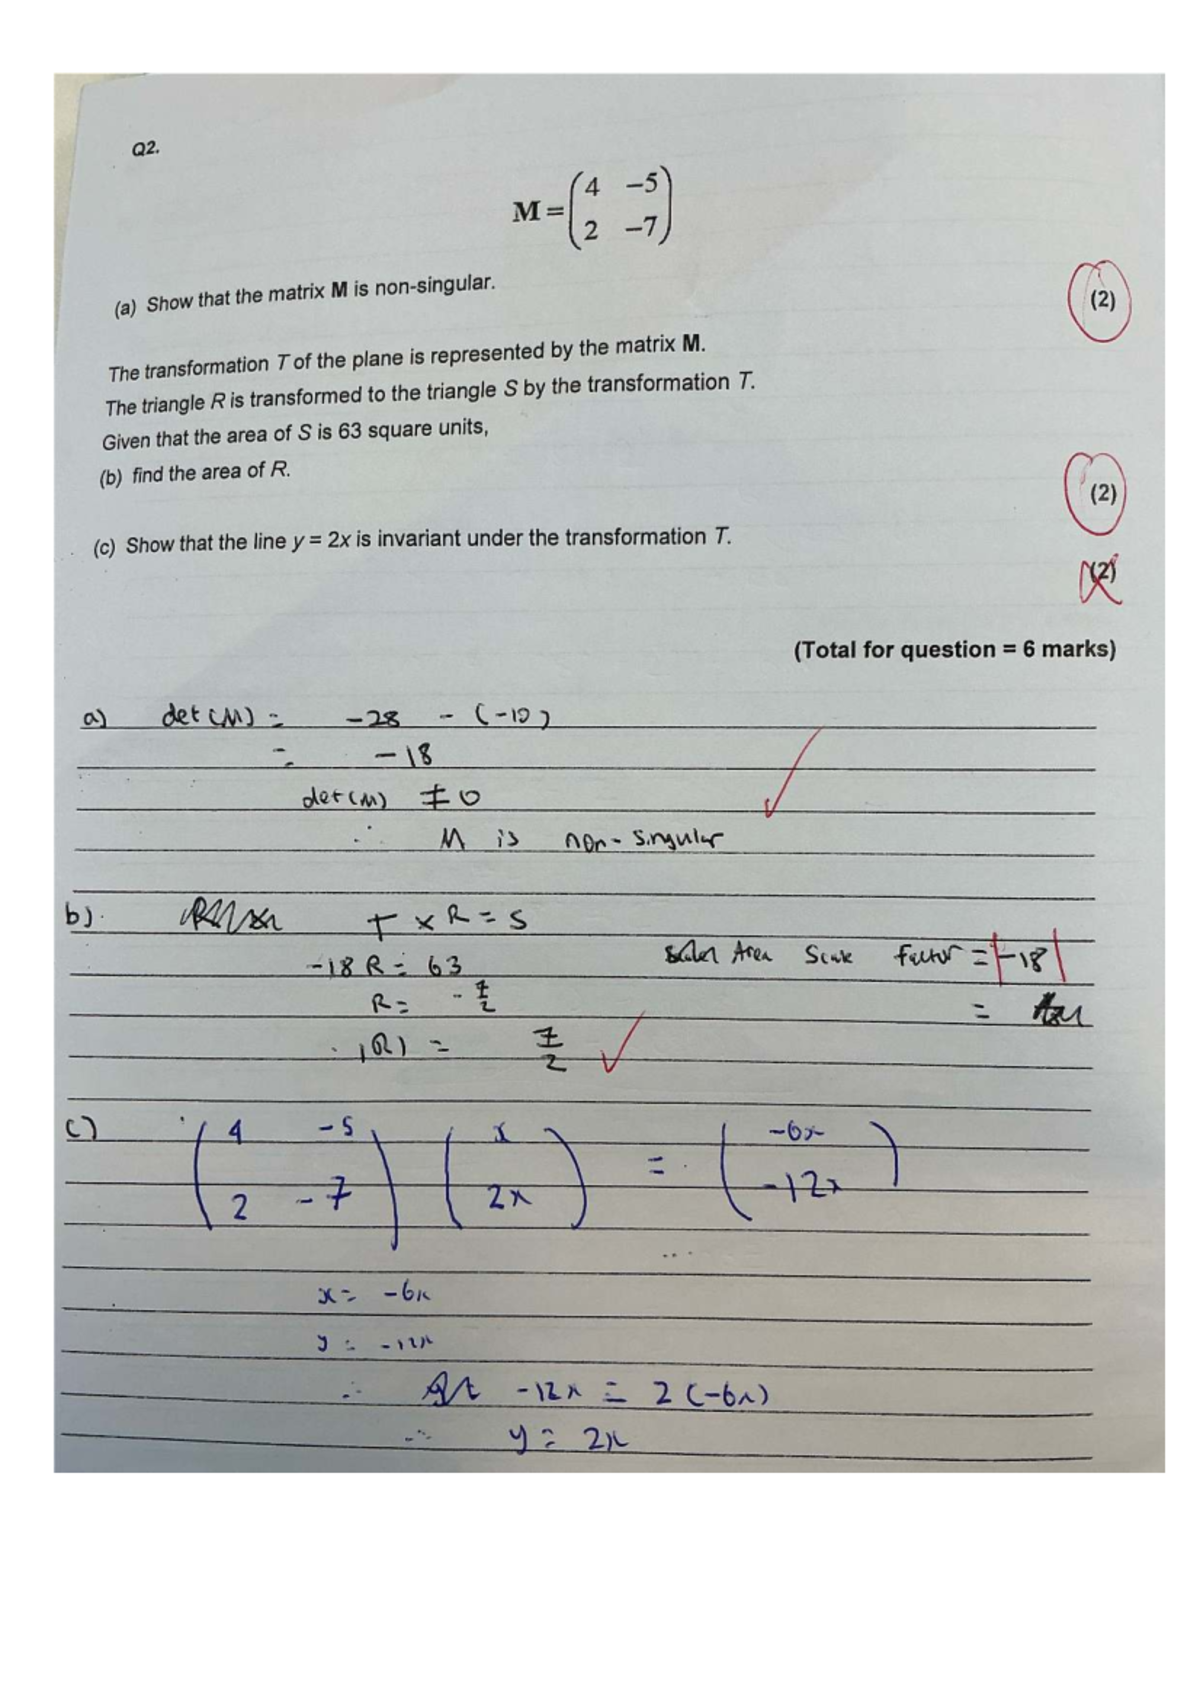 Q2.
M = (4 −5
2 −7)
(a) Show that the matrix M is non-singular.
(2)
The transformation T of the plane is represented by the matrix M.
The triangle R is transformed to the triangle S by the transformation T.
Given that the area of S is 63 square units,
(b) find the area of R.
(2)
(c) Show that the line y = 2x is invariant under the transformation T.
(2)
(Total for question = 6 marks)
a) det(M) = -28 - (-10)
= -18
det(M) ≠ 0
∴ M is non-singular
b). T × R = S
-18 R = 63 Area Scale factor = |-18|
R = -7/2 =
|R| = 7/2
c) (4 -5
2 -7) (x
2x) = (-6x
-12x)
x = -6x
y = -12x
∴ -12x = 2(-6x)
∴ y = 2x